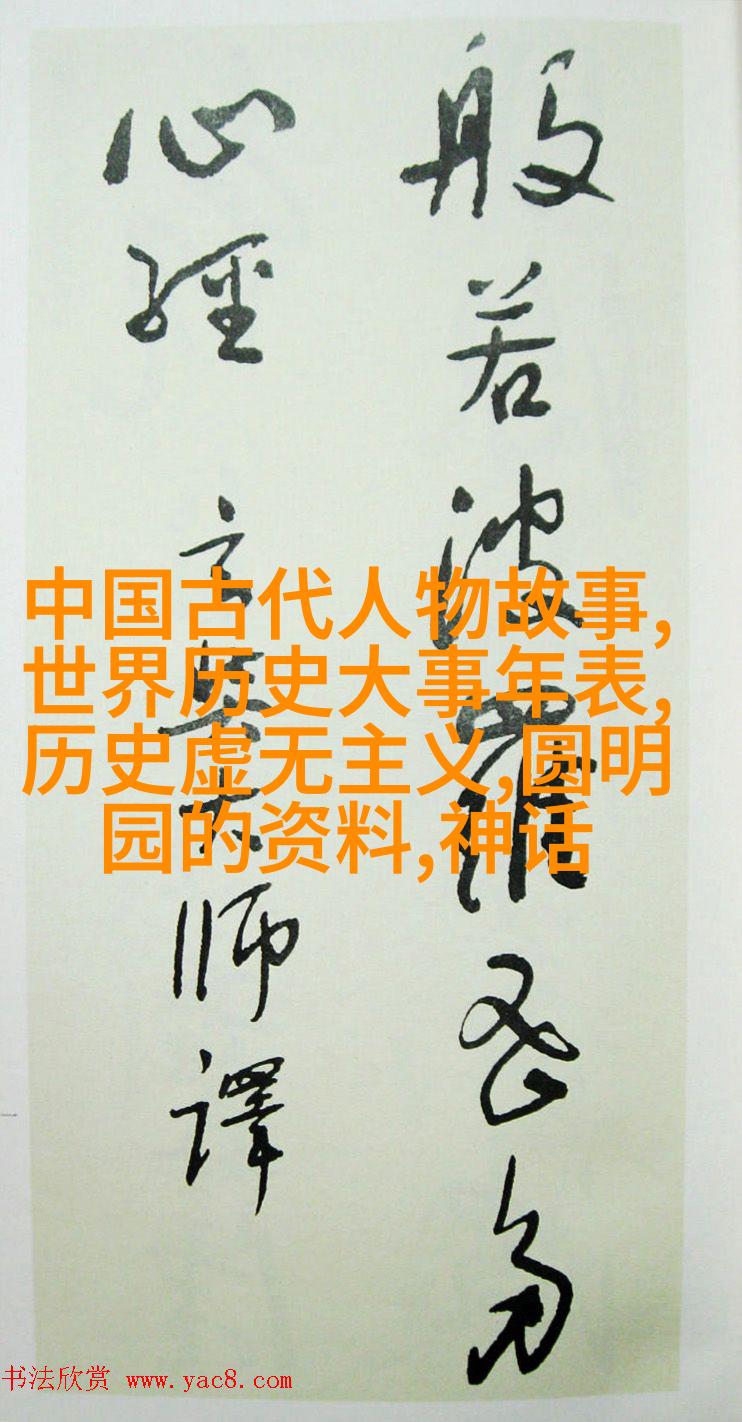 般若波羅蜜多
心經 玄奘大師譯
中国古代人物故事,
世界历史大事年表,
历史虚无主义,圆明
园的资料,神话
书法欣赏 www.yac8.com